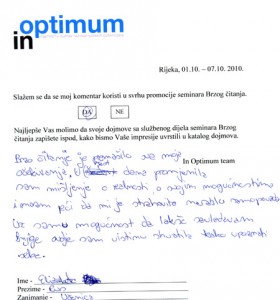 optimum
in
Rijeka, 01.10. – 07.10. 2010.
Slažem se da se moj komentar koristi u svrhu promocije seminara Brzog čitanja.
DA NE
Najljepše Vas molimo da svoje dojmove sa službenog dijela seminara Brzog
čitanja zapišete ispod, kako bismo Vaše impresije uvrstili u katalog dojmova.
In Optimum team
Brzo čitanje je premašilo sve moje
očekivanja. U dana promijenila
sam mišljenje o sebi o svojim mogućnostima
i moram reći da mi je strahovito naraslo samopouzdanje
Uz samu mogućnost da lakše savladavam
knjige ovdje sam uistinu shvatila kako upoznati
sebe.
Ime - Elizabeta
Prezime -
Zanimanje - Učenica